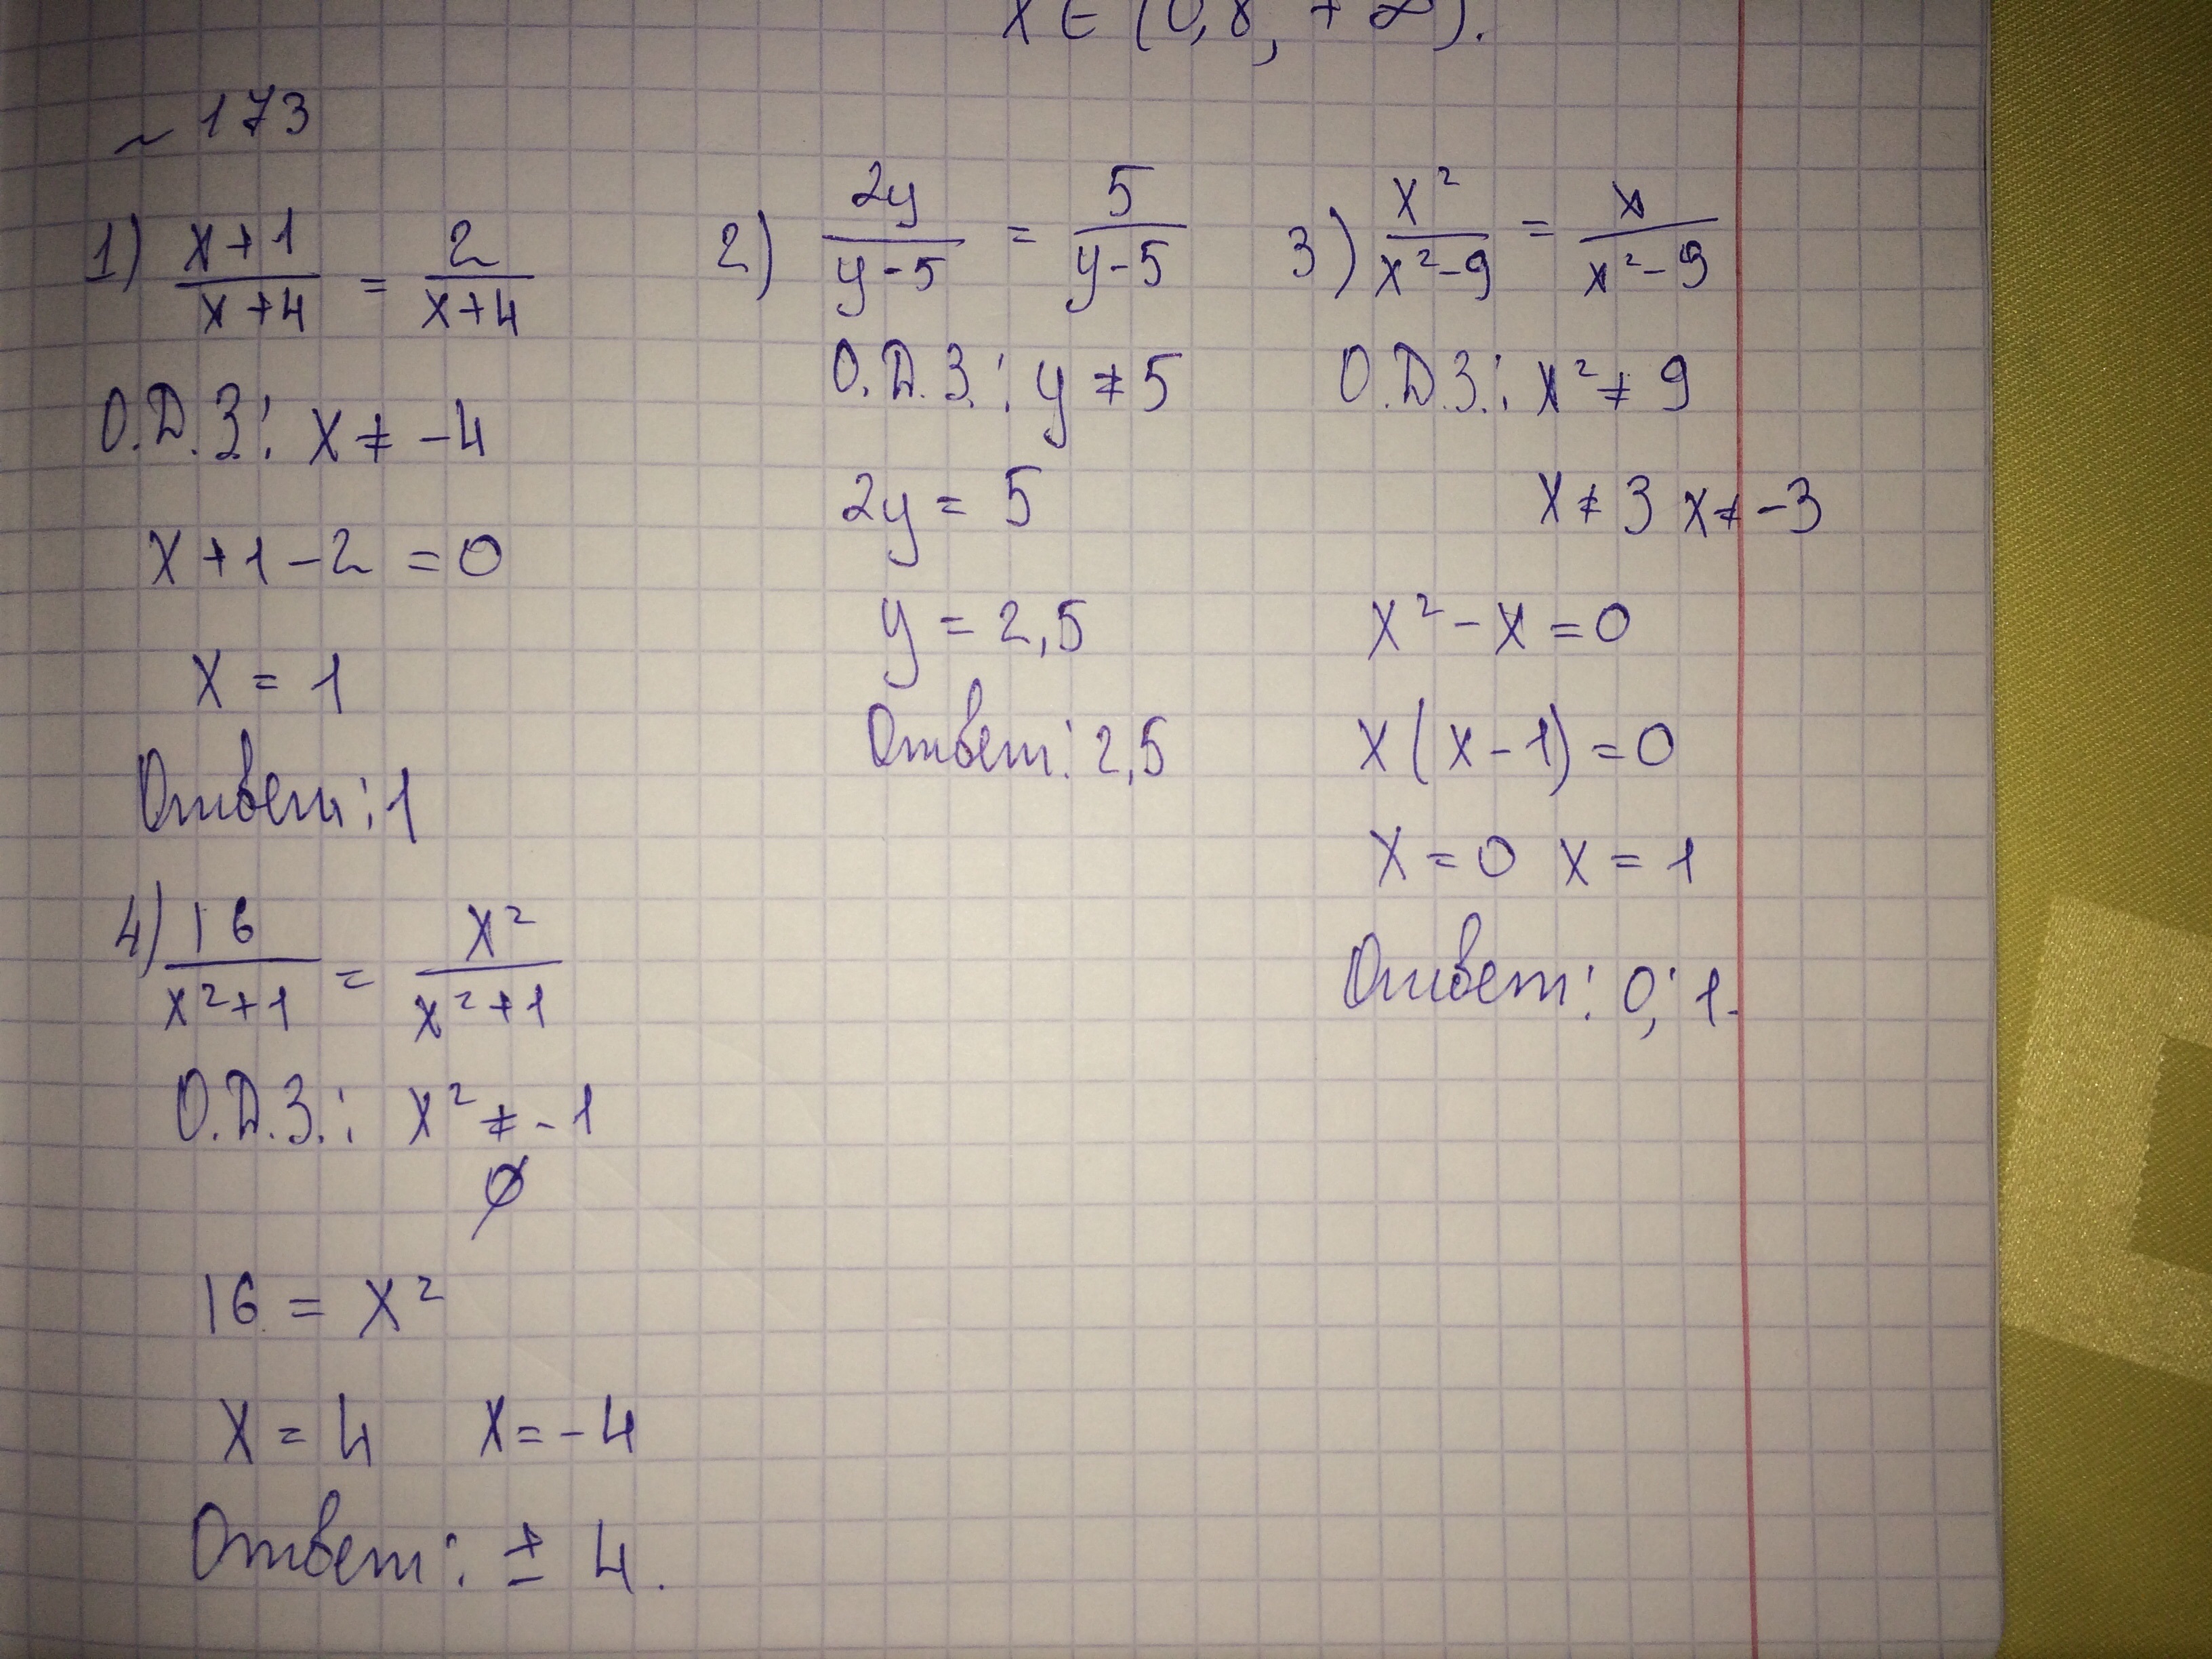 x ∈ (0,8; +∞).
~ 173
1) (x+1)/(x+4) = 2/(x+4)
О.Д.З: x ≠ -4
x+1-2=0
x = 1
Ответ: 1
2) 2y/(y-5) = 5/(y-5)
О.Д.З.: y ≠ 5
2y = 5
y = 2,5
Ответ: 2,5
3) x²/(x²-9) = x/(x²-9)
О.Д.З.: x² ≠ 9
x ≠ 3 x ≠ -3
x² - x = 0
x(x-1) = 0
x = 0 x = 1
Ответ: 0; 1.
4) 16/(x²+1) = x²/(x²+1)
О.Д.З.: x² ≠ -1
∅
16 = x²
x = 4 x = -4
Ответ: ± 4.